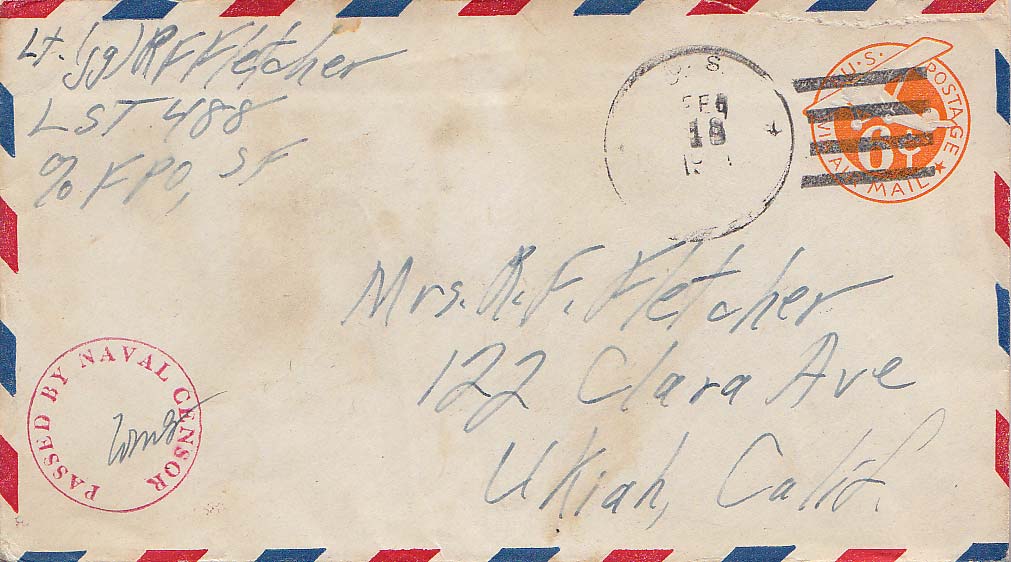 Lt. (jg) R F Fletcher
LST 488
% FPO, SF
U. S.
FEB
18
U.S. POSTAGE
6¢
VIA AIR MAIL
Mrs. R. F. Fletcher
122 Clara Ave
Ukiah, Calif.
PASSED BY NAVAL CENSOR